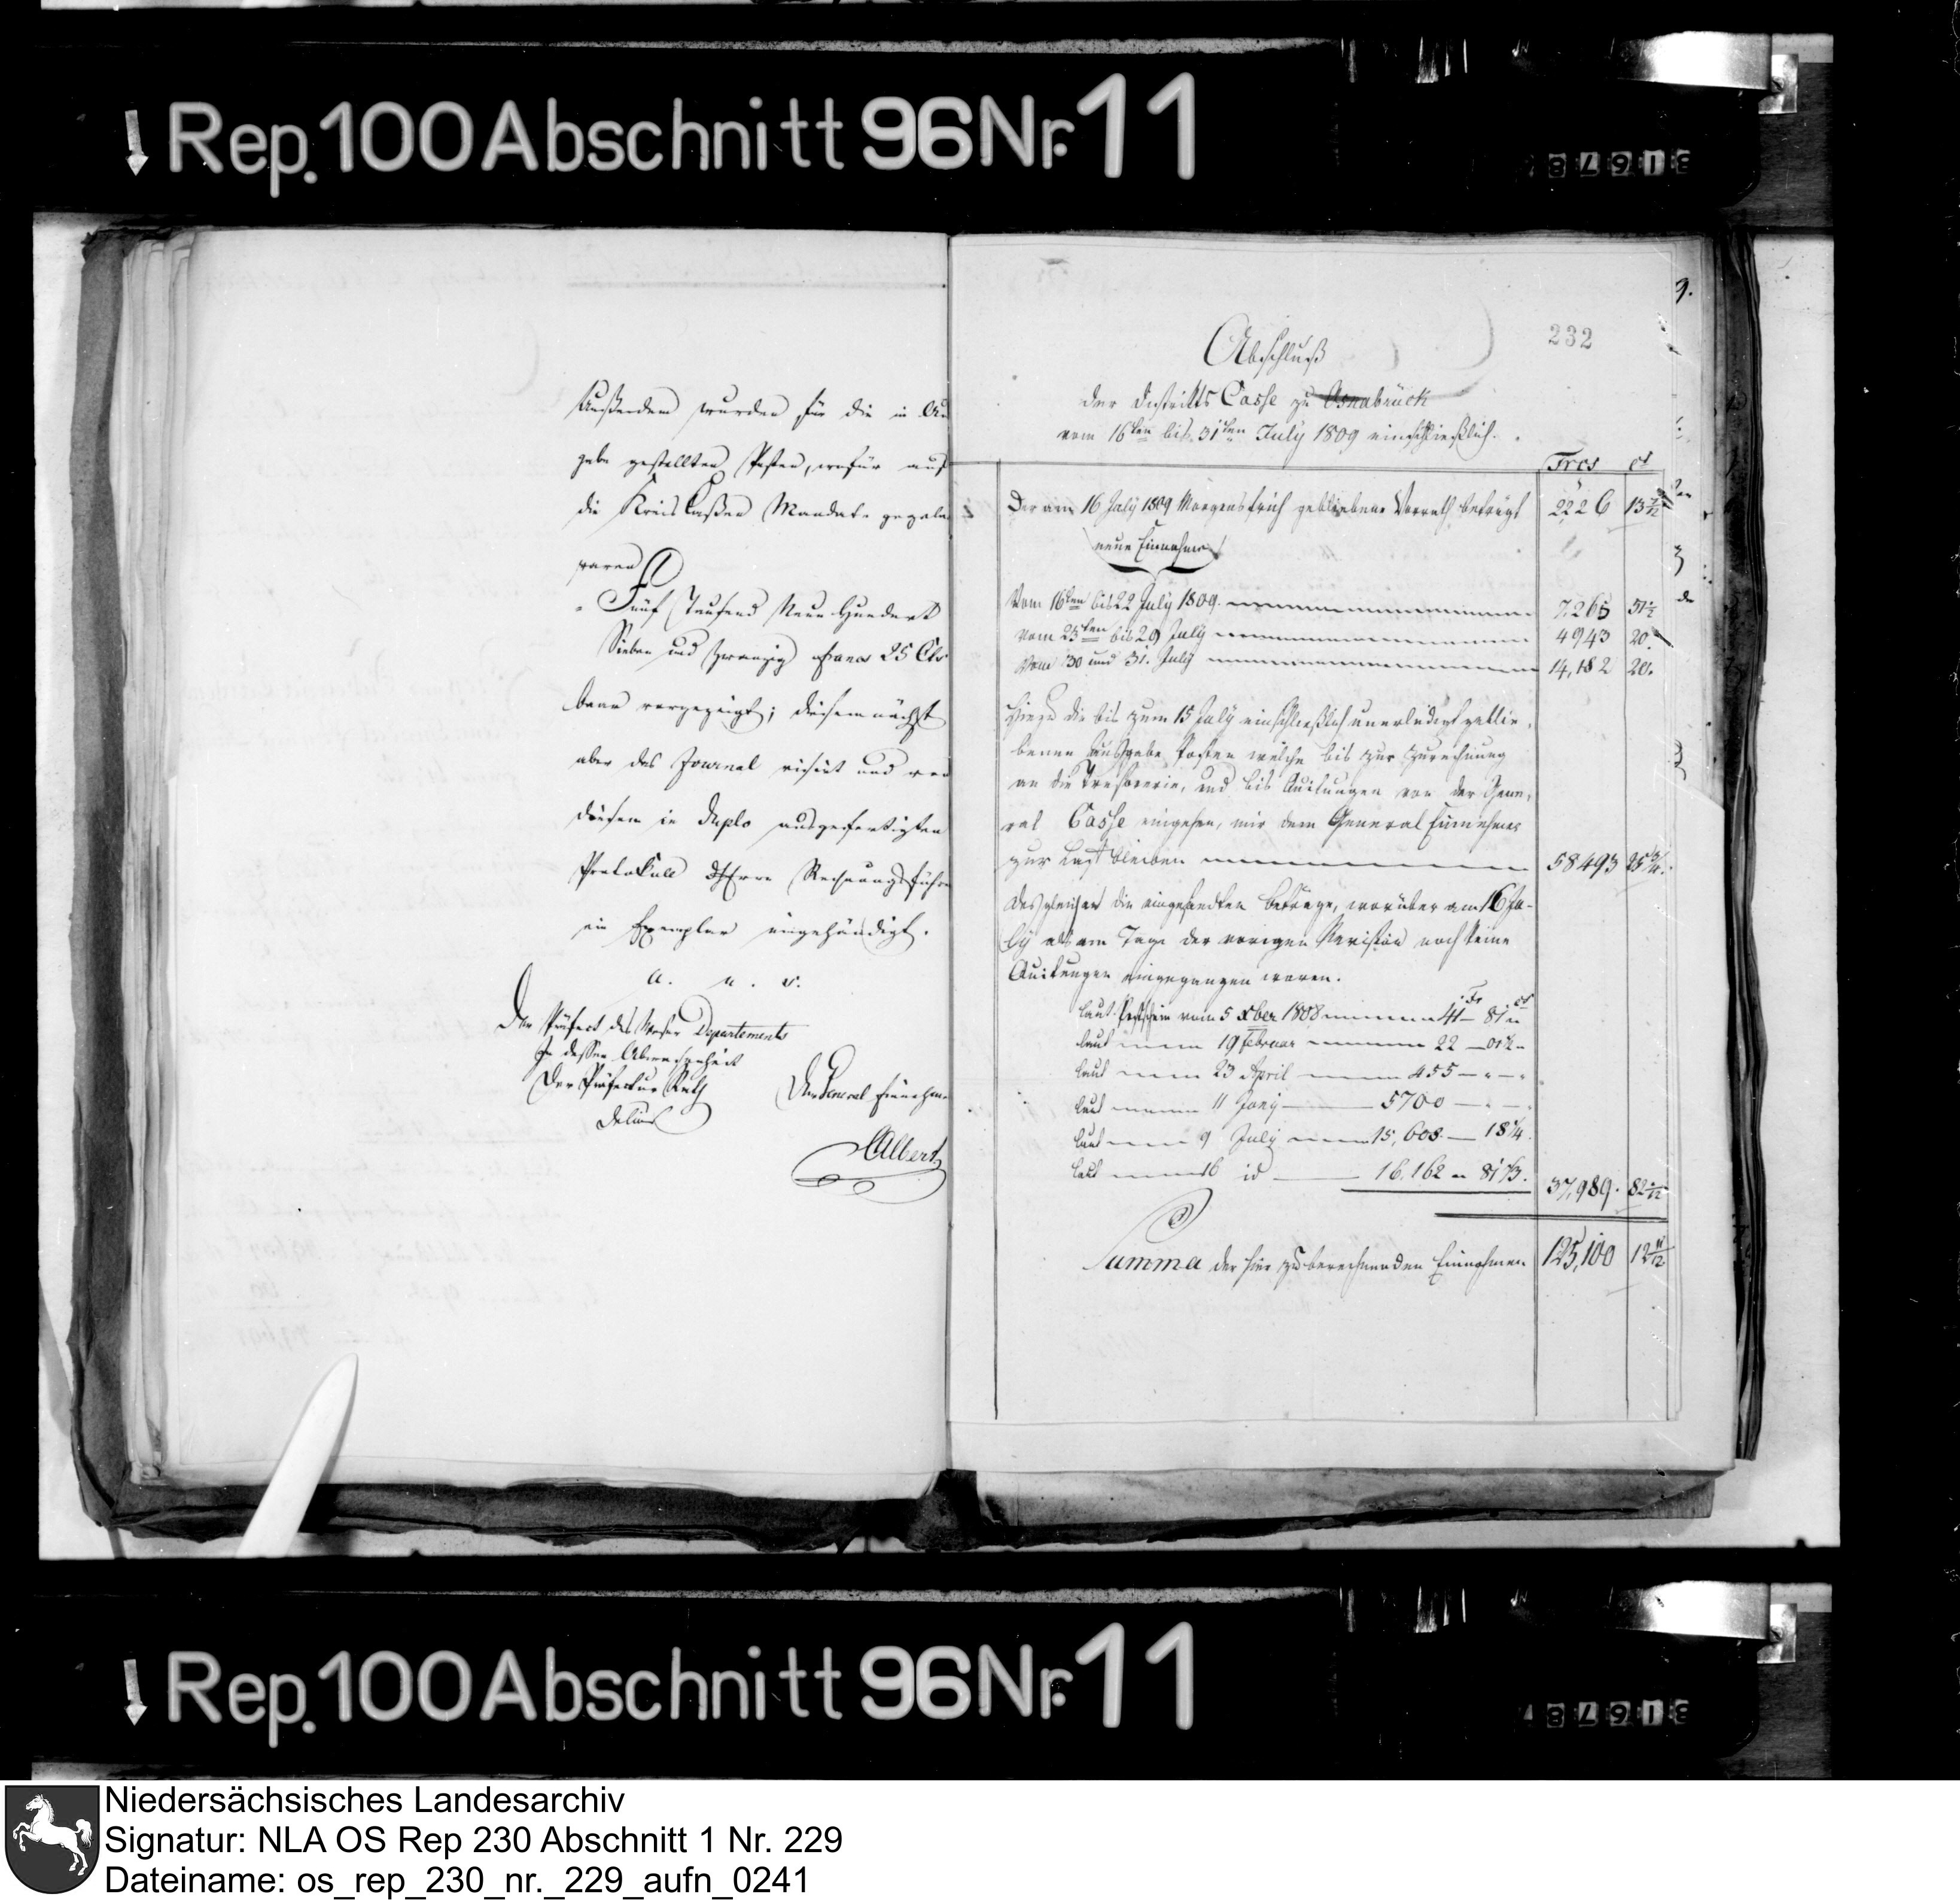 Rep. 100 Abschnitt 96 Nr. 11
Außerdem wurden für die in Aus
gabe gestellten Posten, wofür auf
die Kreis Caßen Mandate gegeben
waren
Fünf Tausend Neun Hundert
Sieben und zwanzig Francs 25 Cts
baar vorgezeigt; diesemnächst
aber das Journal visirt und von
diesem in duplo ausgefertigten
Protokoll dem Herrn Rechnungsführer
ein Exemplar eingehändigt.
a. u. s.
Der Präfect des Weser Departements
In dessen Abwesenheit
Der Präfectur Rath
Delius
Der General Einnehmer
Alberti
9.
232
Abschluß
der Distrikts Casse zu Osnabrück
vom 16ten bis 31ten July 1809 einschließlich.
Frcs ct
Der am 16 July 1809 Morgens früh gebliebene Vorrath beträgt 2226 13 7/12
neue Einnahme
Vom 16ten bis 22 July 1809. 7,265 51 1/2
vom 23ten bis 29 July 4943 20.
Vom 30 und 31. July 14,182 20.
Hiezu die bis zum 15 July einschließlich unerledigt geblie-
benen Ausgabe Posten welche bis zur Zurechnung
an die Tresorerie, und bis Quitungen von der Gene-
ral Casse eingehen, mir dem General Einnehmer
zur Last bleiben 58493 25 3/4.
desgleichen die eingesandten Beträge, worüber am 16 Ju-
ly als am Tage der vorigen Revision noch keine
Quitungen eingegangen waren.
Fr ct
laut Postschein vom 5 xber 1808 41 — 81
laut 19 Februar 22 — 01 1/2
laut 23 April 455 — " —
laut 11 Juny 5700 — " —
laut 9 July 15,608. — 18 1/4.
laut 16 id 16,162 81 1/3.
37,989. 82 1/12
Summa der hier zu berechnenden Einnahmen 125,100 12 11/12
Rep. 100 Abschnitt 96 Nr. 11
Niedersächsisches Landesarchiv
Signatur: NLA OS Rep 230 Abschnitt 1 Nr. 229
Dateiname: os_rep_230_nr._229_aufn_0241